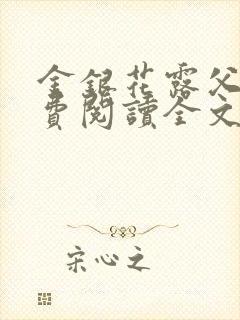 金銀花露父
費閱讀全文
宋心之